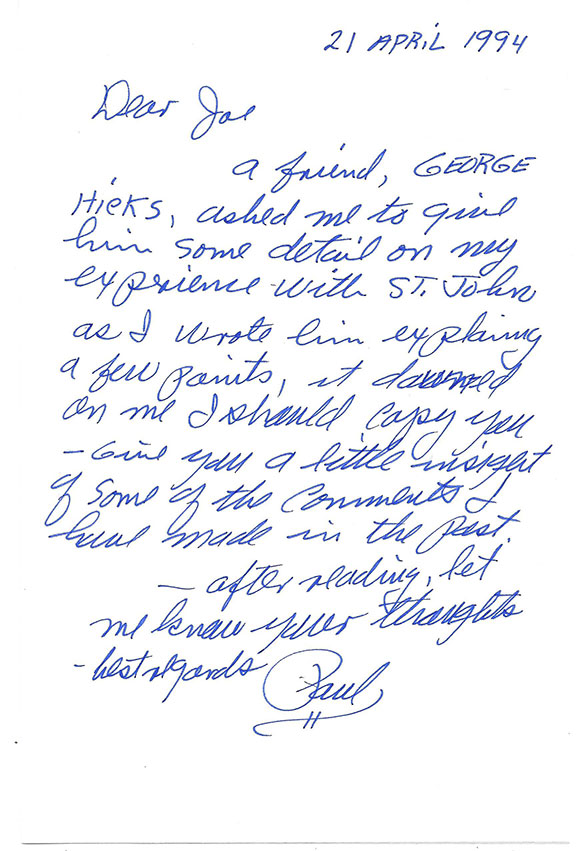 21 APRIL 1994
Dear Joe
a friend, GEORGE
HICKS, asked me to give
him some detail on my
experience with ST. John
as I wrote him explaining
a few points, it dawned
on me I should copy you
- Give you a little insight
of some of the comments I
have made in the past.
- after reading, let
me know your thoughts
- best regards Paul